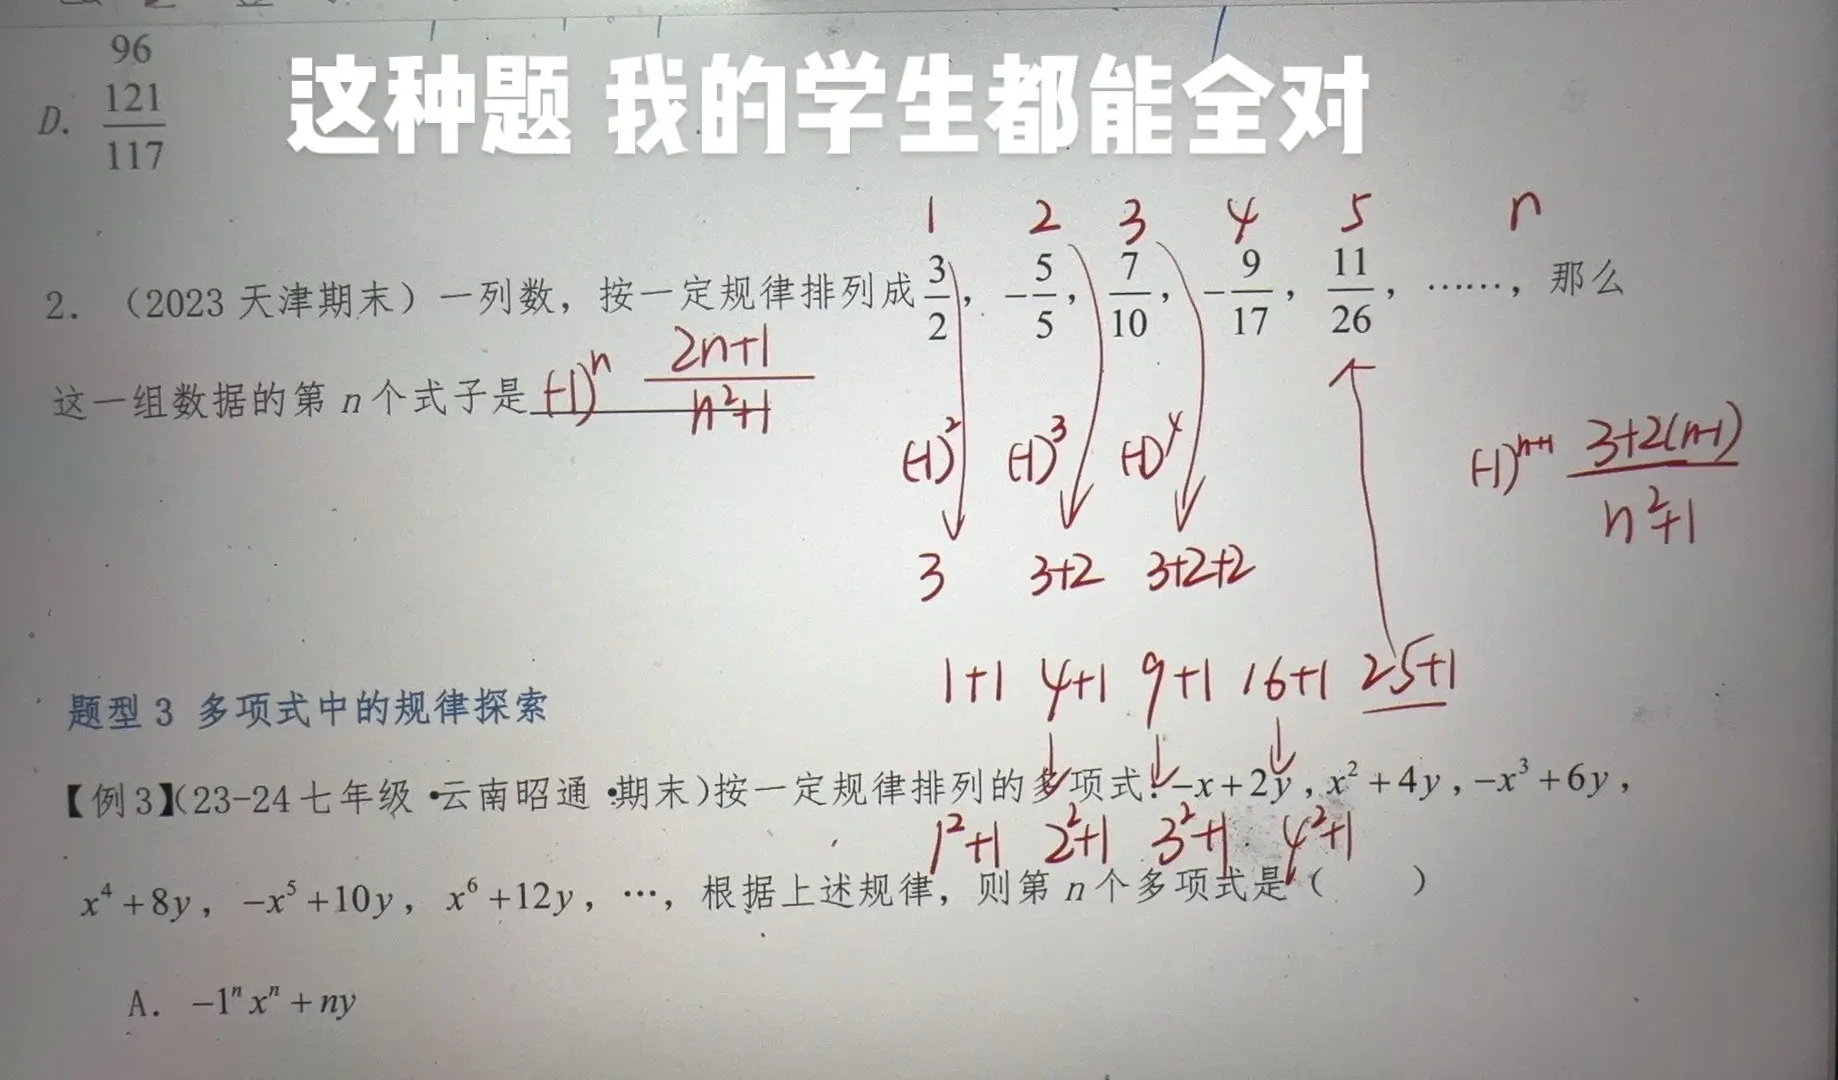 96
D. 121/117
这种题 我的学生都能全对
1 2 3 4 5 n
2. （2023 天津期末）一列数，按一定规律排列成 3/2，-5/5，7/10，-9/17，11/26，……，那么
这一组数据的第 n 个式子是 (-1)^n (2n+1)/(n²+1)
(-1)² (-1)³ (-1)⁴ (-1)^(n+1) (3+2(n-1))/(n²+1)
3 3+2 3+2+2
1+1 4+1 9+1 16+1 25+1
题型 3 多项式中的规律探索
【例 3】(23-24 七年级·云南昭通·期末)按一定规律排列的多项式：-x+2y，x²+4y，-x³+6y，
1²+1 2²+1 3²+1 4²+1
x⁴+8y，-x⁵+10y，x⁶+12y，…，根据上述规律，则第 n 个多项式是（ ）
A. -1ⁿxⁿ+ny